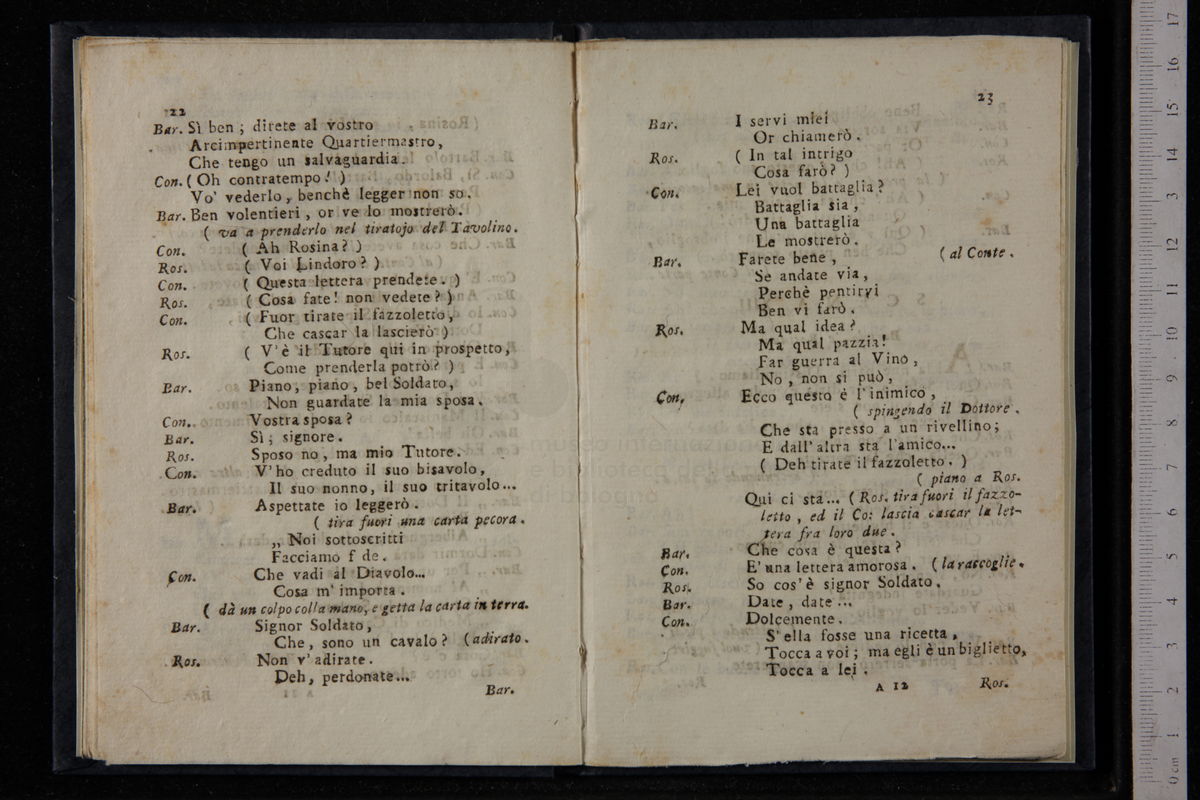 22
Bar. Sì ben ; direte al vostro
Arcimpertinente Quartiermastro,
Che tengo un salvaguardia.
Con. ( Oh contratempo! )
Vo' vederlo, benchè legger non so.
Bar. Ben volentieri , or ve lo mostrerò.
( va a prenderlo nel tiratojo del Tavolino.
Con. ( Ah Rosina? )
Ros. ( Voi Lindoro? )
Con. ( Questa lettera prendete. )
Ros. ( Cosa fate! non vedete? )
Con. ( Fuor tirate il fazzoletto,
Che cascar la lascierò )
Ros. ( V'è il Tutore qui in prospetto,
Come prenderla potrò? )
Bar. Piano, piano, bel Soldato,
Non guardate la mia sposa.
Con. Vostra sposa?
Bar. Sì; signore.
Ros. Sposo no, ma mio Tutore.
Con. V'ho creduto il suo bisavolo,
Il suo nonno, il suo tritavolo...
Bar. Aspettate io leggerò.
( tira fuori una carta pecora.
„ Noi sottoscritti
Facciamo f de.
Con. Che vadi al Diavolo...
Cosa m' importa.
( dà un colpo colla mano, e getta la carta in terra.
Bar. Signor Soldato,
Che, sono un cavalo? (adirato.
Ros. Non v' adirate.
Deh, perdonate...
Bar.
23
Bar. I servi miei
Or chiamerò.
Ros. ( In tal intrigo
Cosa farò? )
Con. Lei vuol battaglia?
Battaglia sia,
Una battaglia
Le mostrerò.
Bar. Farete bene, ( al Conte.
Se andate via,
Perchè pentirvi
Ben vi farò.
Ros. Ma qual idea?
Ma qual pazzia!
Far guerra al Vino,
No, non si può,
Con. Ecco questo è l'inimico,
( spingendo il Dottore.
Che sta presso a un rivellino;
E dall' altra sta l'amico...
( Deh tirate il fazzoletto. )
( piano a Ros.
Qui ci sta... ( Ros. tira fuori il fazzo-
letto, ed il Co: lascia cascar la let-
tera fra loro due.
Bar. Che cosa è questa?
Con. E' una lettera amorosa. (la raccoglie.
Ros. So cos'è signor Soldato.
Bar. Date, date...
Con. Dolcemente.
S'ella fosse una ricetta,
Tocca a voi; ma egli è un biglietto,
Tocca a lei.
A 12 Ros.
museo internazionale
e biblioteca della
bologna
0 cm 1 2 3 4 5 6 7 8 9 10 11 12 13 14 15 16 17